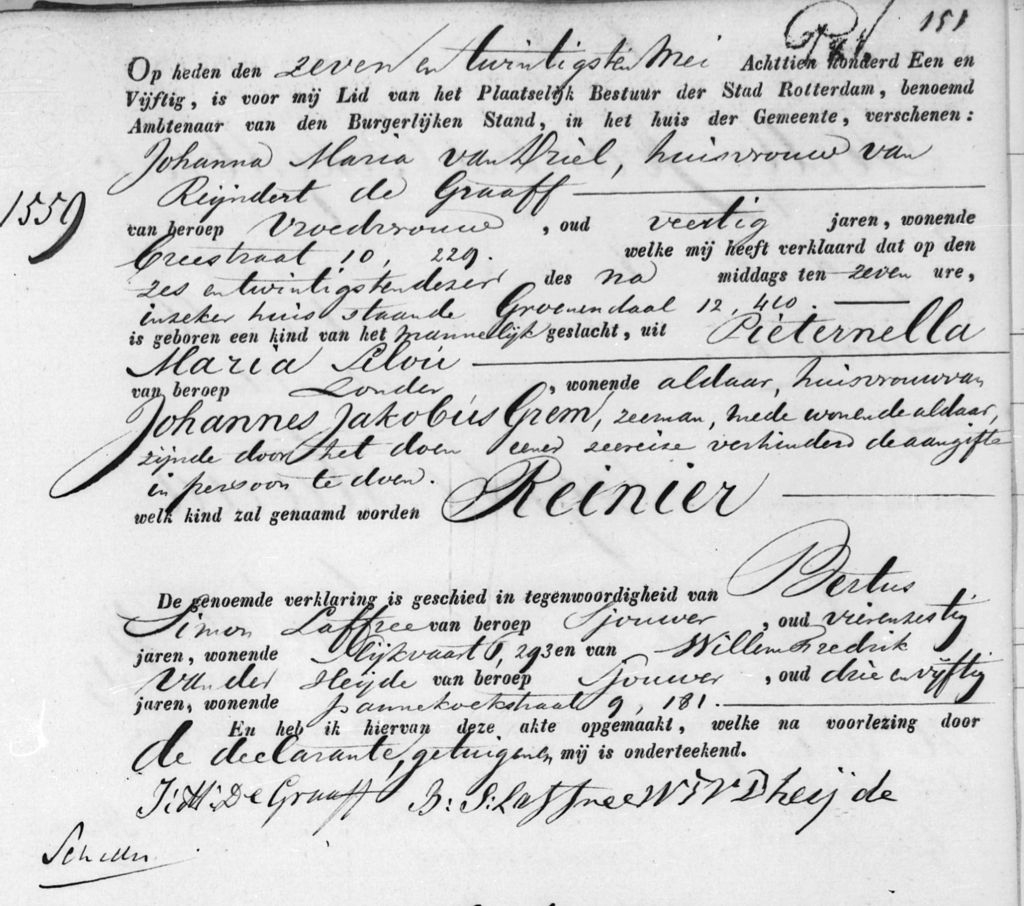 151
Op heden den zeven en twintigsten Mei Achttien honderd Een en
Vijftig, is voor mij Lid van het Plaatselijk Bestuur der Stad Rotterdam, benoemd
Ambtenaar van den Burgerlijken Stand, in het huis der Gemeente, verschenen:
Johanna Maria van Driel, huisvrouw van
1559
Reijndert de Graaff
van beroep Vroedvrouw, oud veertig jaren, wonende
Creestraat 10, 229. welke mij heeft verklaard dat op den
zes en twintigsten dezer des na middags ten zeven ure,
in zeker huis staande Groenendaal 12, 410.
is geboren een kind van het mannelijk geslacht, uit Pieternella
Maria
van beroep Zonder, wonende aldaar, huisvrouw van
Johannes Jakobus Grem, zeeman, mede wonende aldaar,
zijnde door het doen eener zeereise verhinderd de aangifte
in persoon te doen.
welk kind zal genaamd worden Reinier
De genoemde verklaring is geschied in tegenwoordigheid van Bertus
Simon Laffree van beroep Sjouwer, oud vierenzestig
jaren, wonende Slijkvaart 6, 293 en van Willem Fredrik
van der Heijde van beroep Sjouwer, oud drie en vijftig
jaren, wonende Pannekoekstraat 9, 181.
En heb ik hiervan deze akte opgemaakt, welke na voorlezing door
de declarante, getuigen en mij is onderteekend.
J: M: De Graaff B: S: Laffree W F V D heijde